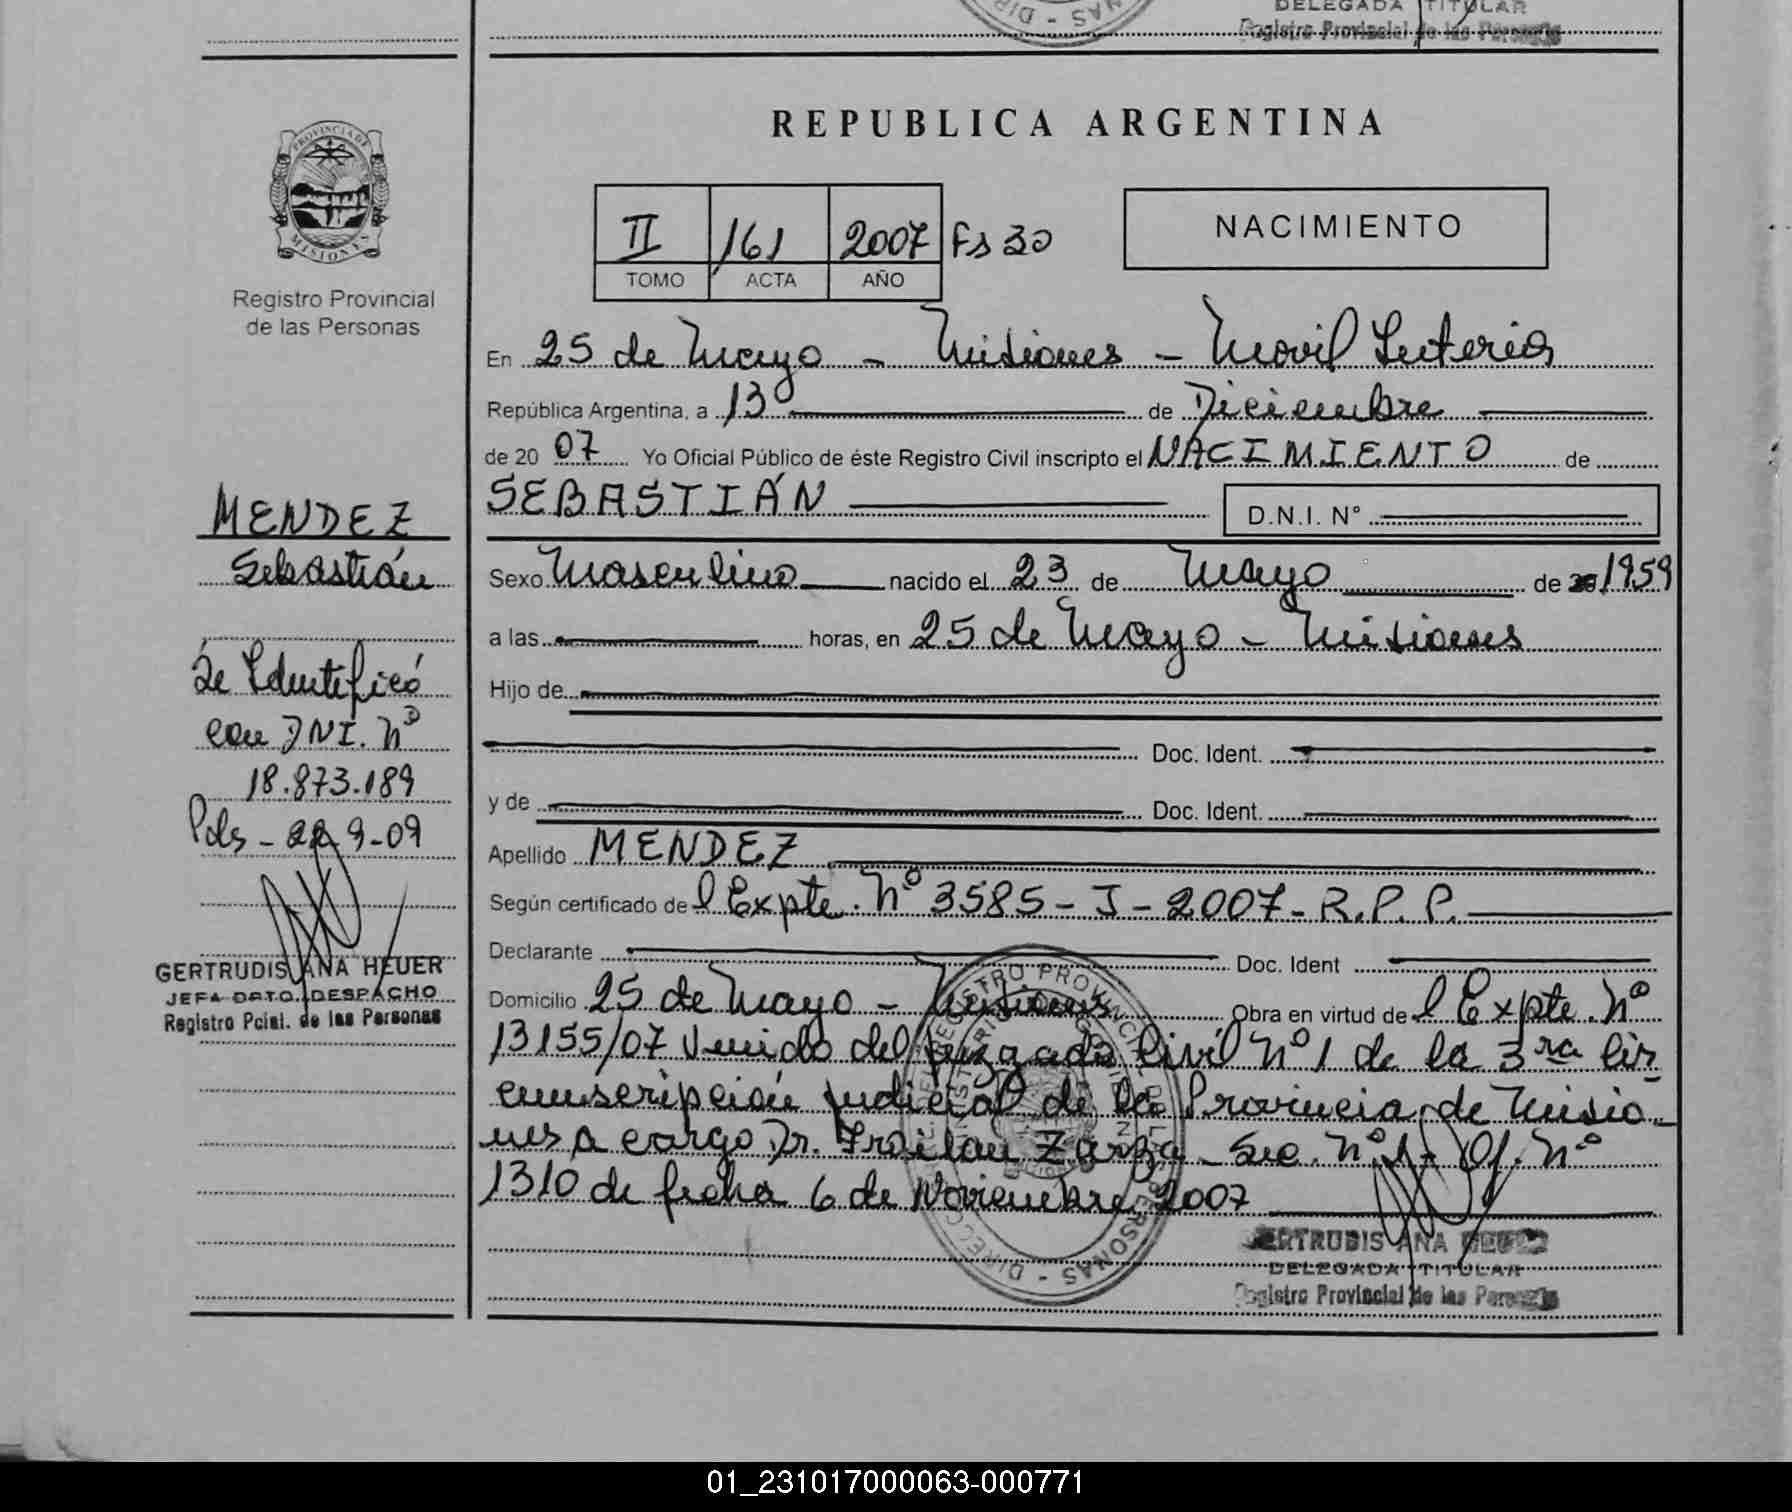 DELEGADA TITULAR
Registro Provincial de las Personas
PROVINCIA DE
MISIONES
Registro Provincial
de las Personas
MENDEZ
Sebastián
Se Identificó
con DNI. Nº
18.873.189
Pds - 22-9-09
GERTRUDIS ANA HEUER
JEFA DPTO. DESPACHO
Registro Pcial. de las Personas
REPUBLICA ARGENTINA
II 161 2007 Fs 30
TOMO ACTA AÑO
NACIMIENTO
En 25 de Mayo - Misiones - Movil Interior
República Argentina, a 13 de Diciembre
de 20 07 Yo Oficial Público de éste Registro Civil inscripto el NACIMIENTO de
SEBASTIÁN D.N.I. N°
Sexo Masculino nacido el 23 de Mayo de 1959
a las horas, en 25 de Mayo - Misiones
Hijo de
Doc. Ident.
y de Doc. Ident.
Apellido MENDEZ
Según certificado de l Expte. Nº 3585 - J - 2007 - R.P.P.
Declarante Doc. Ident
Domicilio 25 de Mayo - Misiones Obra en virtud de l Expte. Nº
13155/07 Venido del Juzgado Civil Nº 1 de la 3ra Cir
cunscripción Judicial de la Provincia de Misio
nes a cargo Dr. Froilan Zarza - Sec. Nº 1 - Of. Nº
1310 de fecha 6 de Noviembre 2007
GERTRUDIS ANA HEUER
DELEGADA TITULAR
Registro Provincial de las Personas
01_231017000063-000771